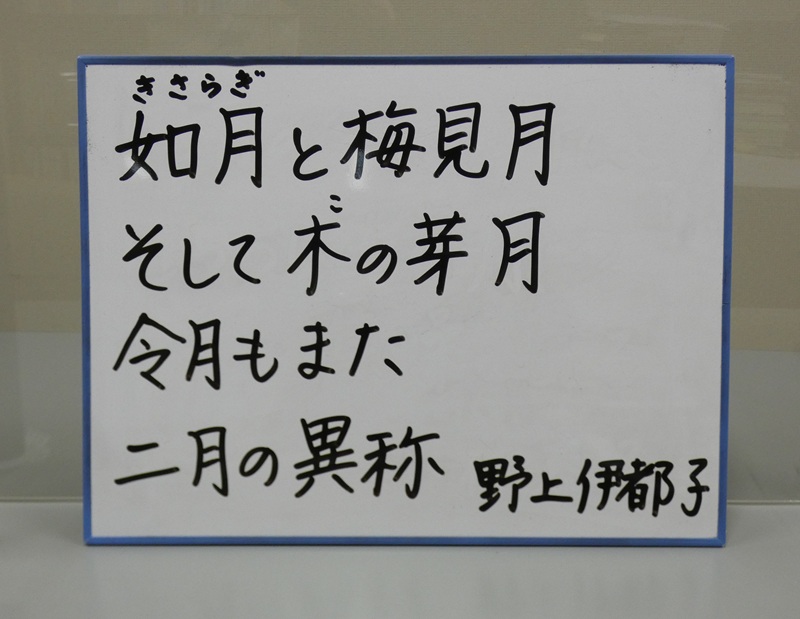 きさらぎ
如月と梅見月
こ
そして木の芽月
令月もまた
二月の異称
野上伊都子